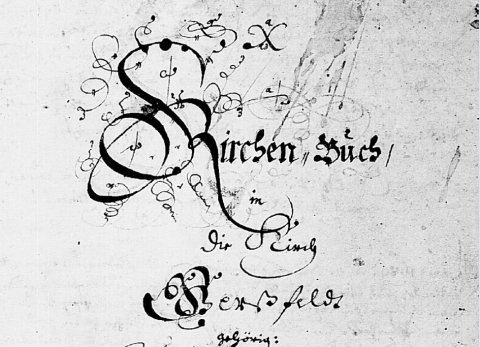 Kirchen = Buch /
in
die Kirch
Gerßfeldt
gehörig: